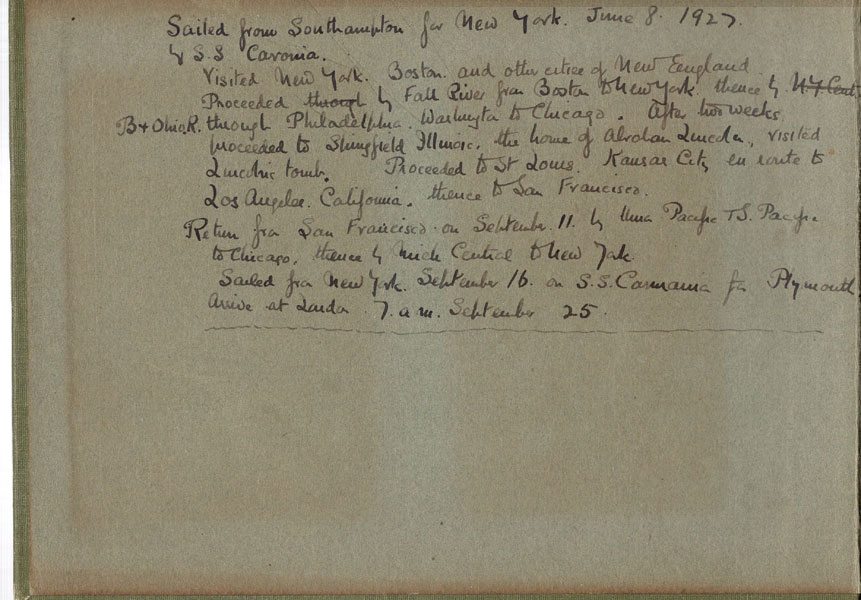 Sailed from Southampton for New York. June 8. 1927.
by S.S Caronia.
Visited New York. Boston. and other cities of New England
Proceeded through by Fall River from Boston to New York. thence by N.Y. Cent
B & Ohio R. through Philadelphia. Washington to Chicago. After two weeks
proceeded to Springfield Illinois. the home of Abraham Lincoln, visited
Lincolns tomb. Proceeded to St Louis. Kansas City en route to
Los Angeles. California. thence to San Francisco.
Return from San Francisco on September. 11. by Union Pacific & S. Pacific
to Chicago. thence by Mich Central to New York.
Sailed from New York. September 16. on S.S. Carmania for Plymouth
Arrive at London 7. a m. September 25.